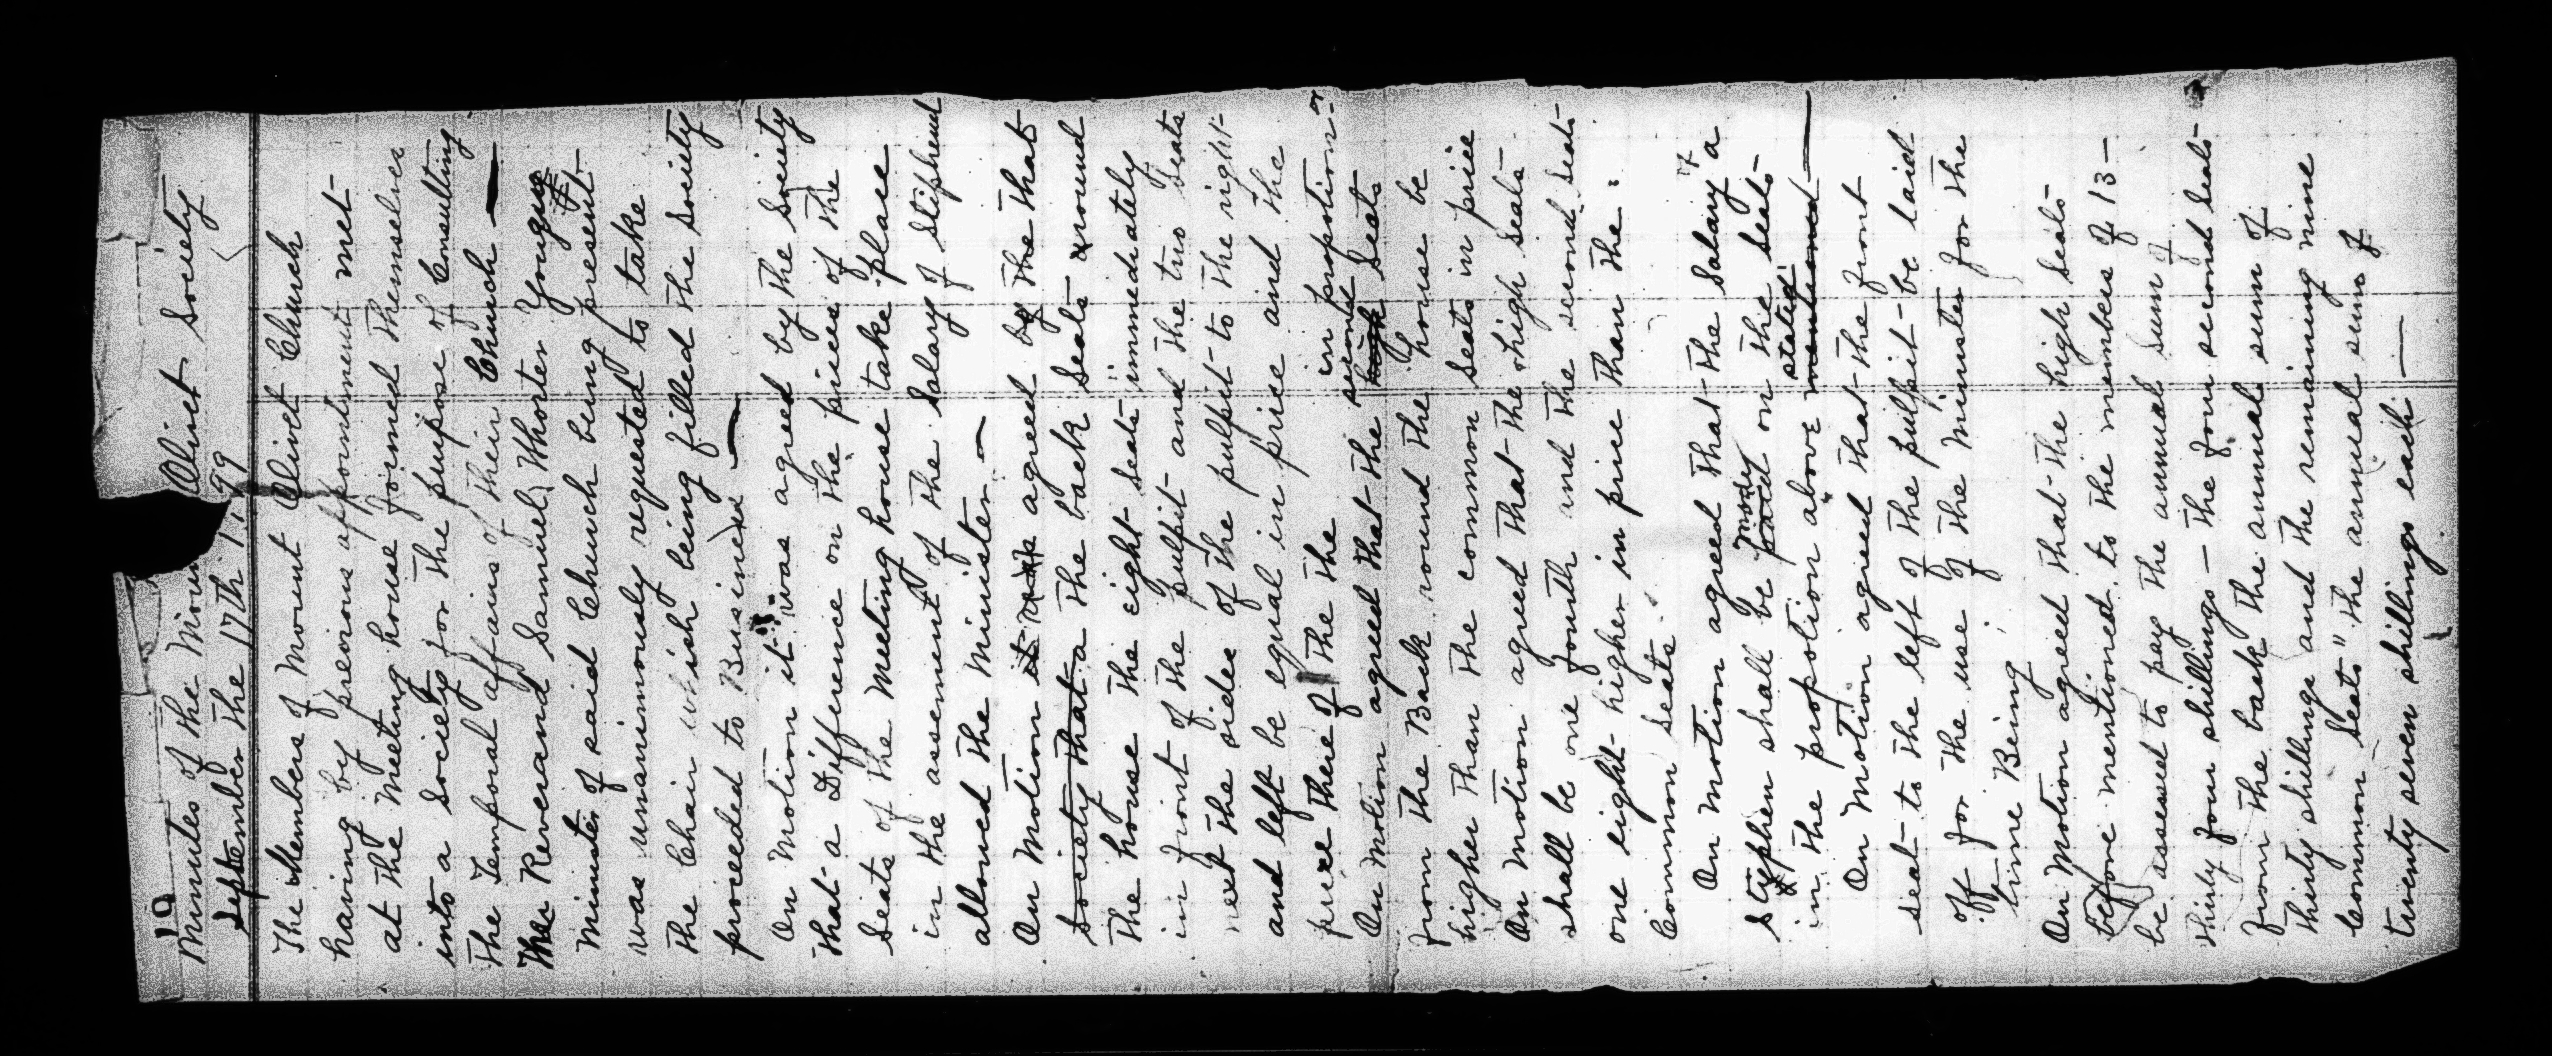 10
Minutes of the Moun Olivet Society
September the 17th 1. 99
The Members of Mount Olivet Church
having by previous appointment met
at the Meeting house formed Themselves
into a Society for the purpose of Consulting
the Temporal affairs of their Church —
The Reverand Samuel Thorter Young
Minister of said Church being present
was unanimously requested to take
the Chair which being filled the Society
proceeded to Business —
On Motion it was agreed by the Society
that a Difference on the prices of the
Seats of the Meeting house take place
in the assement of the Salary of Stiphend
allowed the Minister —
On Motion it was agreed by the that
society that a the back Seats round
The house the eight Seats immediately
in front of the pulpit and the two Seats
next the sides of the pulpit to the right
and left be equal in price and the
price there of the the in propotion-
On Motion agreed that the second high Seats
from the Back round the house be
higher than the common Seats in price
On Motion agreed that the high Seats
shall be one fourth and the second Seats
one eight higher in price than the
Common Seats.
On Motion agreed that the Salary of a
Styphen shall be paid on the Seats
in the propotion above stated mentioned —
On Motion agreed that the front
seat to the left of the pulpit be laid
off for the use of the Minister for the
time Being
On Motion agreed that the high Seats
before mentioned to the members of 13 —
be assessed to pay the annual sum of
thirty four shillings — the four second Seats
from the back the annual sum of
thirty shillings and the remaining nine
Common Seats" the annual sum of
twenty seven shillings each —